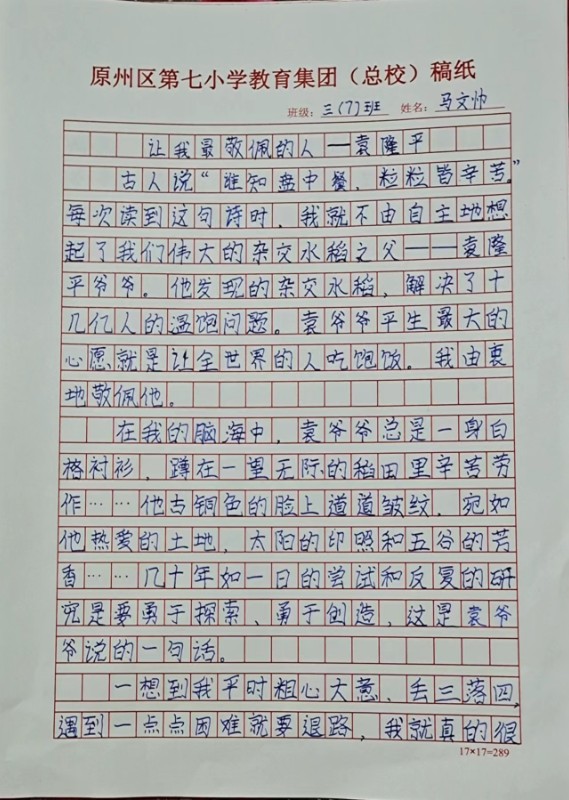 原州区第七小学教育集团（总校）稿纸
班级：三(7)班 姓名：马文帅
让我最敬佩的人——袁隆平
古人说“谁知盘中餐，粒粒皆辛苦。”
每次读到这句诗时，我就不由自主地想
起了我们伟大的杂交水稻之父——袁隆
平爷爷。他发现的杂交水稻，解决了十
几亿人的温饱问题。袁爷爷平生最大的
心愿就是让全世界的人吃饱饭。我由衷
地敬佩他。
在我的脑海中，袁爷爷总是一身白
格衬衫，蹲在一望无际的稻田里辛苦劳
作……他古铜色的脸上道道皱纹，宛如
他热爱的土地，太阳的印照和五谷的芳
香……几十年如一日的尝试和反复的研
究是要勇于探索、勇于创造，这是袁爷
爷说的一句话。
一想到我平时粗心大意、丢三落四，
遇到一点点困难就要退路，我就真的很
17×17=289